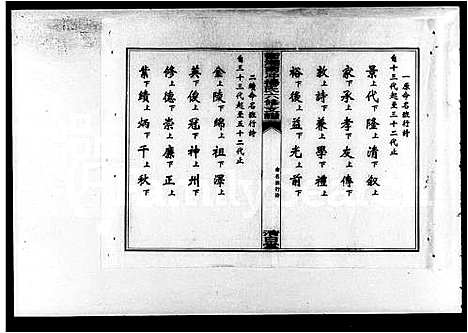 一原命名派行詩
自十三代起至三十二代止
景上代下隆上清下叙上
家下承上孝下友上傳下
敦上詩下兼上學下禮上
裕下後上益下光上前下
命名派行詩
清白堂
二續命名派行詩
自三十三代起至五十二代止
金上陵下綿上祖下澤上
英下俊上冠下神上州下
修上德下崇上廉下正上
業下績上炳下千上秋下